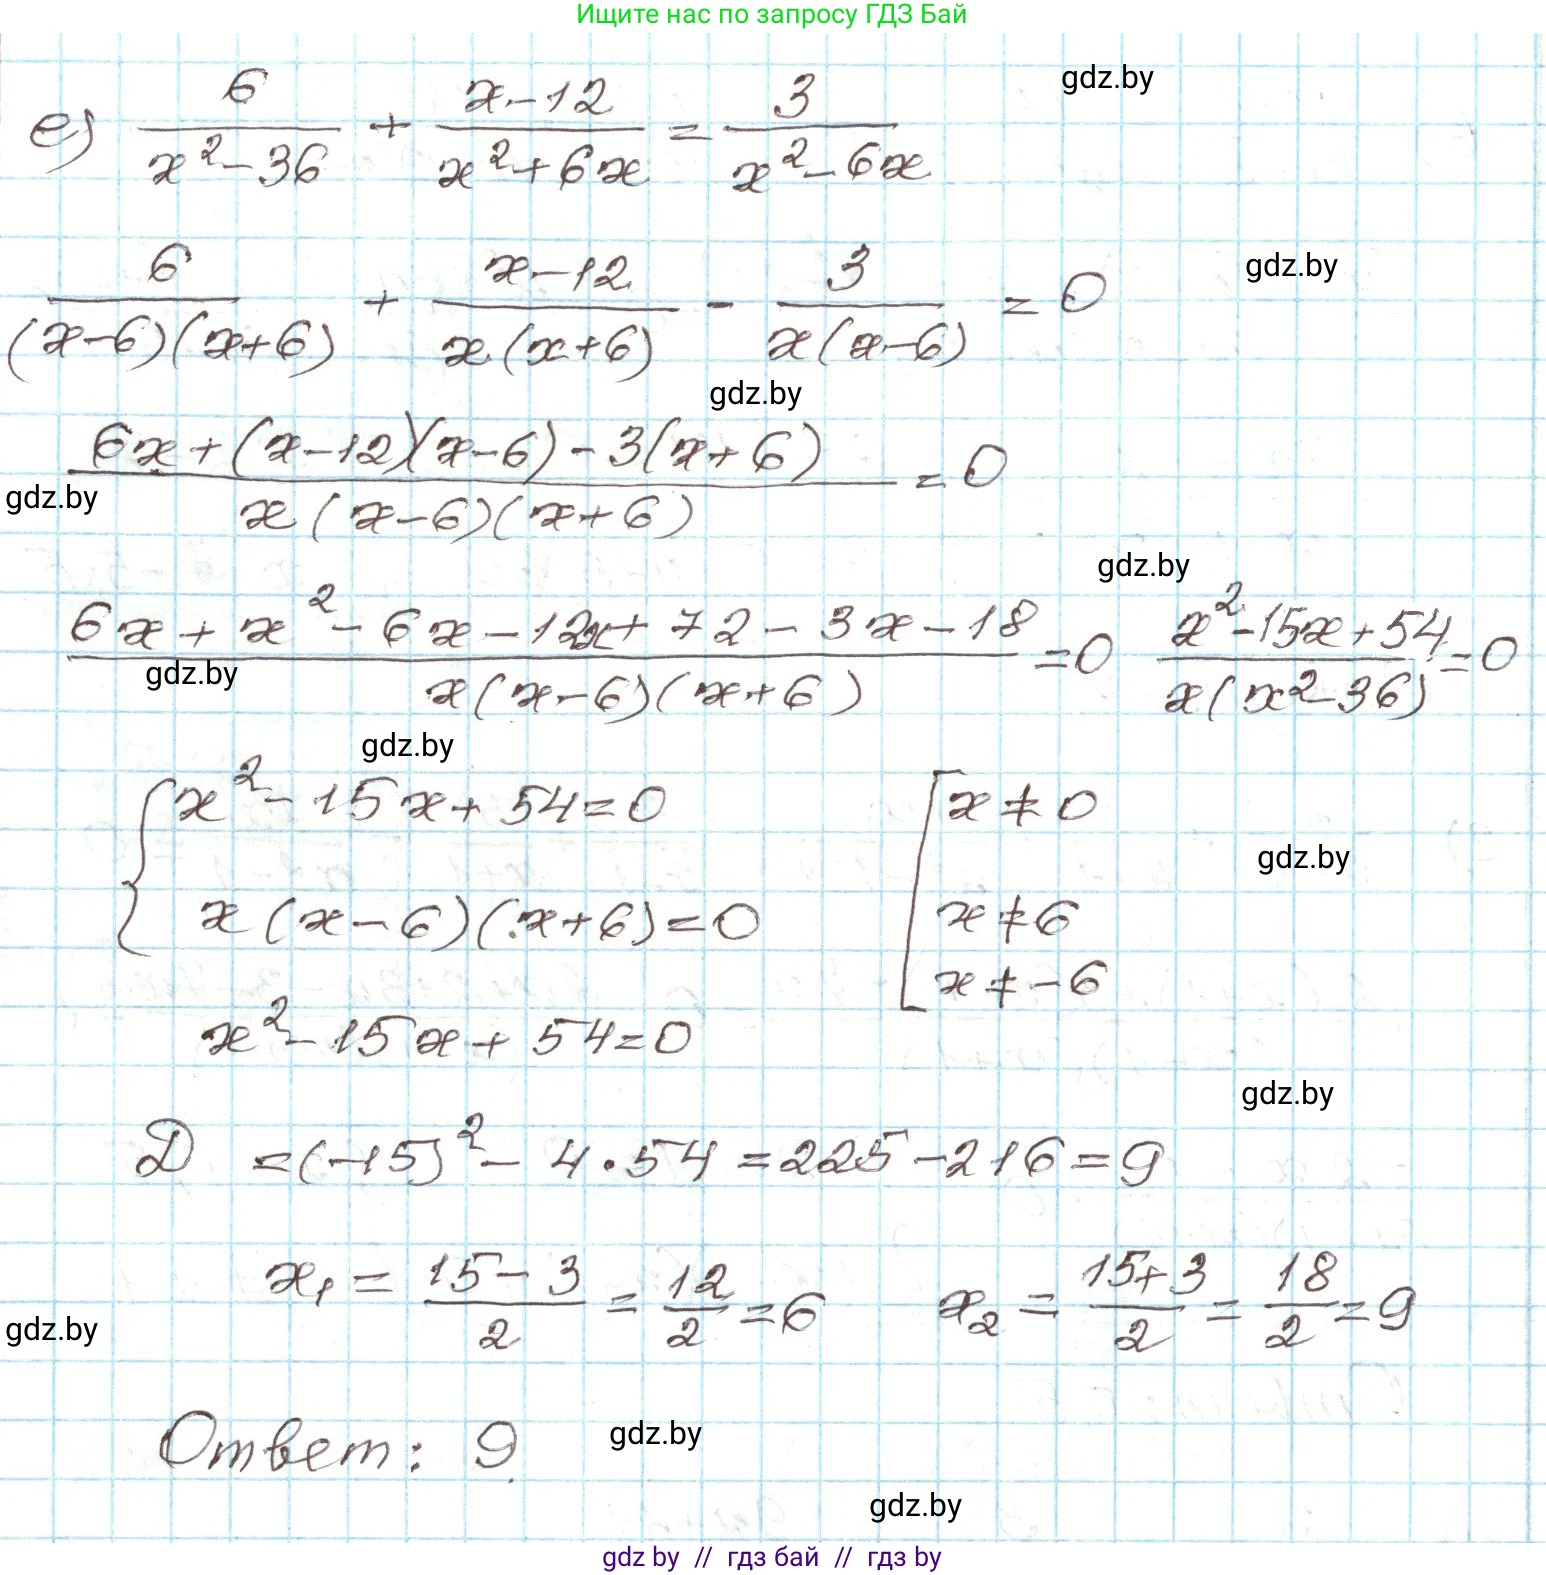 Ищите нас по запросу ГДЗ Бай
gdz.by
е) 6/(x²-36) + (x-12)/(x²+6x) = 3/(x²-6x)
gdz.by
6/((x-6)(x+6)) + (x-12)/(x(x+6)) - 3/(x(x-6)) = 0
gdz.by
(6x+(x-12)(x-6)-3(x+6))/(x(x-6)(x+6)) = 0
gdz.by
gdz.by
(6x+x²-6x-12x+72-3x-18)/(x(x-6)(x+6)) = 0 (x²-15x+54)/(x(x²-36)) = 0
gdz.by
gdz.by
{ x²-15x+54=0 [ x≠0
gdz.by
x(x-6)(x+6)=0 x≠6
x≠-6
x²-15x+54=0
gdz.by
D =(-15)²-4·54=225-216=9
x₁ = (15-3)/2 = 12/2 = 6 x₂ = (15+3)/2 = 18/2 = 9
gdz.by
Ответ: 9
gdz.by
gdz.by
gdz by // гдз бай // гдз by